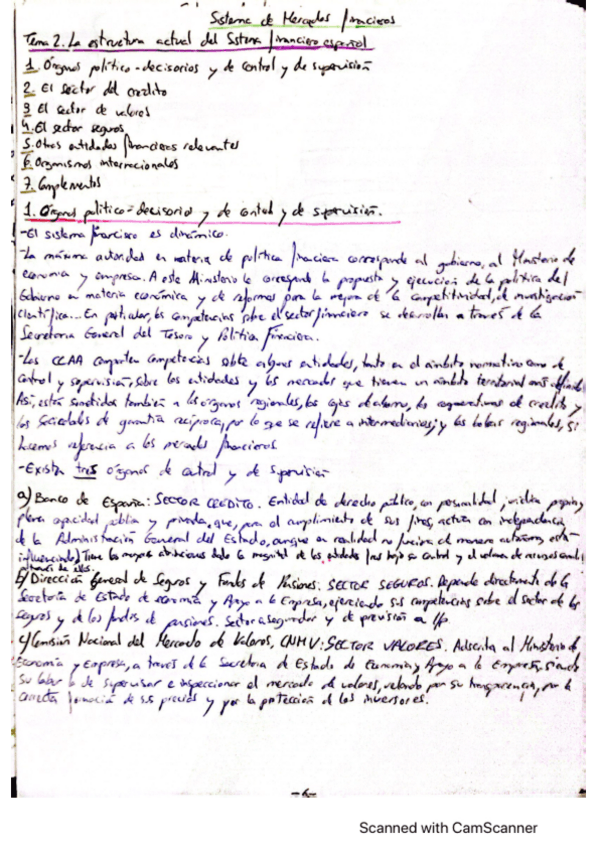 Sistema de Mercados financieros
Tema 2. La estructura actual del Sistema financiero español
1. Órganos político-decisorios y de control y de supervisión
2. El sector del crédito
3 El sector de valores
4. El sector seguros
5. Otras entidades financieras relevantes
6. Organismos internacionales
7. Complementos
1. Órganos político-decisorios y de control y de supervisión.
-El sistema financiero es dinámico.
-La máxima autoridad en materia de política financiera corresponde al gobierno, al Ministerio de
economía y empresa. A este Ministerio le corresponde la propuesta y ejecución de la política del
Gobierno en materia económica y de reformas para la mejora de la competitividad, de investigación
científica... En particular, las competencias sobre el sector financiero se desarrollan a través de la
Secretaría General del Tesoro y Política Financiera.
-Las CCAA comparten competencias sobre algunas entidades, tanto en el ámbito normativo como de
control y supervisión, sobre las entidades y los mercados que tienen un ámbito territorial más
Así, están sometidos también a los órganos regionales, las cajas de ahorro, las cooperativas de crédito y
las Sociedades de garantía recíproca, por lo que se refiere a intermediarios; y las bolsas regionales, si
hacemos referencia a los mercados financieros.
-Existen tres órganos de control y de supervisión
a) Banco de España: SECTOR CRÉDITO. Entidad de derecho público, con personalidad jurídica propia y
plena capacidad pública y privada, que, para el cumplimiento de sus fines, actúa con independencia
de la Administración General del Estado, aunque en realidad no funciona de manera autónoma, está
influenciado) Tiene las mayores atribuciones dada la magnitud de las entidades bajo su control y el volumen de recursos
a través de ellos.
b) Dirección General de Seguros y Fondos de Pensiones: SECTOR SEGUROS. Depende directamente de la
Secretaría de Estado de economía y Apoyo a la Empresa, ejerciendo sus competencias sobre el sector de los
seguros y de los fondos de pensiones. Sector asegurador y de previsión a l/p.
c) Comisión Nacional del Mercado de Valores, CNMV: SECTOR VALORES. Adscrita al Ministerio de
Economía y Empresa, a través de la Secretaría de Estado de Economía y Apoyo a la Empresa, siendo
su labor la de supervisar e inspeccionar el mercado de valores, velando por su transparencia, por la
correcta formación de sus precios y por la protección de los inversores.
-6-
Scanned with CamScanner